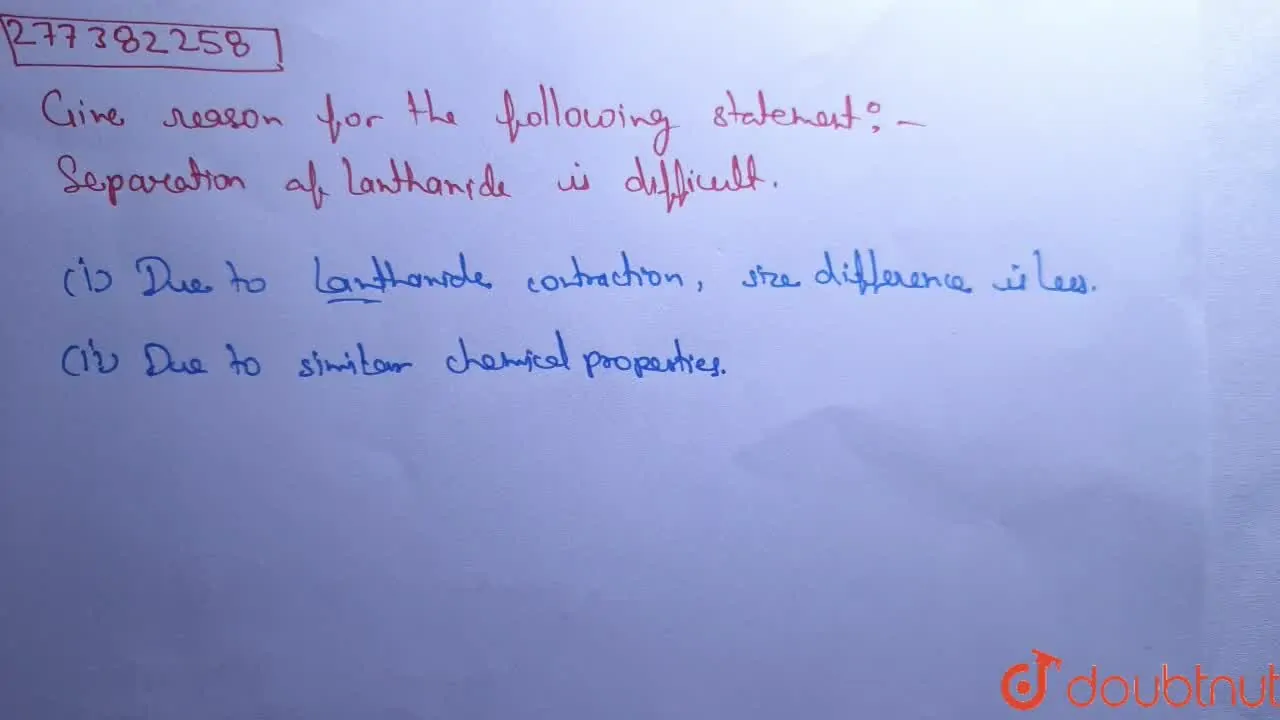 277382258
Give reason for the following statement:-
Separation of lanthanide is difficult.
(i) Due to lanthanide contraction, size difference is less.
(ii) Due to similar chemical properties.
doubtnut